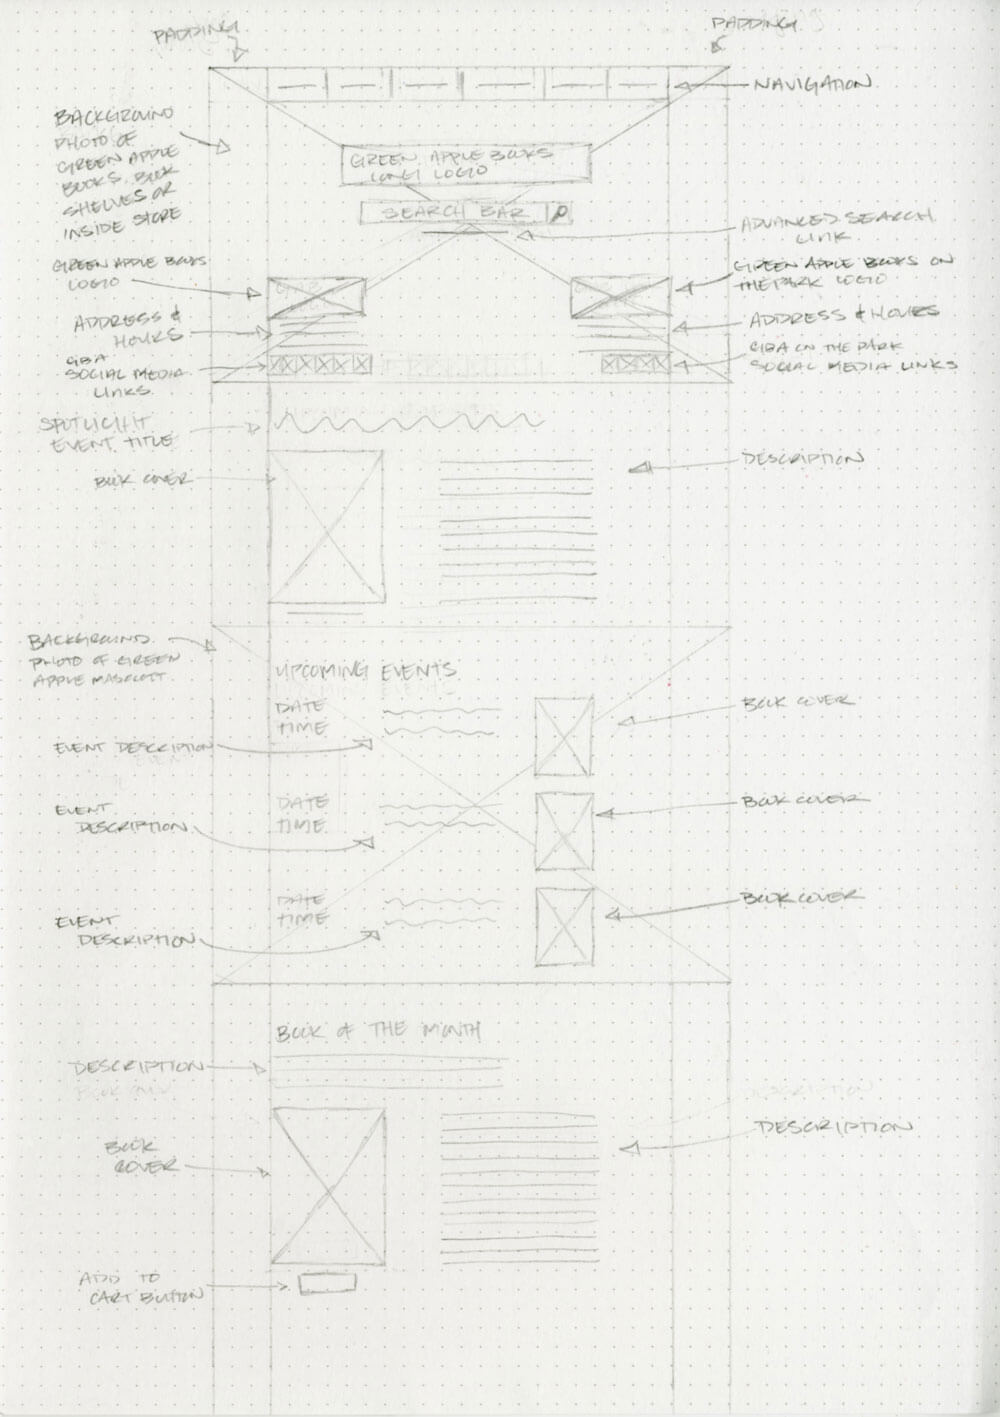 PADDING
PADDING
NAVIGATION
BACKGROUND
PHOTO OF
GREEN APPLE
BOOKS, BOOK
SHELVES OR
INSIDE STORE
GREEN APPLE BOOKS
LONG LOGO
SEARCH BAR
ADVANCED SEARCH
LINK
GREEN APPLE BOOKS
LOGO
GREEN APPLE BOOKS ON
THE PARK LOGO
ADDRESS &
HOURS
ADDRESS & HOURS
GBA
SOCIAL MEDIA
LINKS
GBA ON THE PARK
SOCIAL MEDIA LINKS
SPOTLIGHT
EVENT TITLE
BOOK COVER
DESCRIPTION
BACKGROUND
PHOTO OF GREEN
APPLE MASCOTT
UPCOMING EVENTS
DATE
TIME
BOOK COVER
EVENT DESCRIPTION
DATE
TIME
BOOK COVER
EVENT
DESCRIPTION
DATE
TIME
BOOK COVER
EVENT
DESCRIPTION
BOOK OF THE MONTH
DESCRIPTION
DESCRIPTION
DESCRIPTION
BOOK
COVER
ADD TO
CART BUTTON